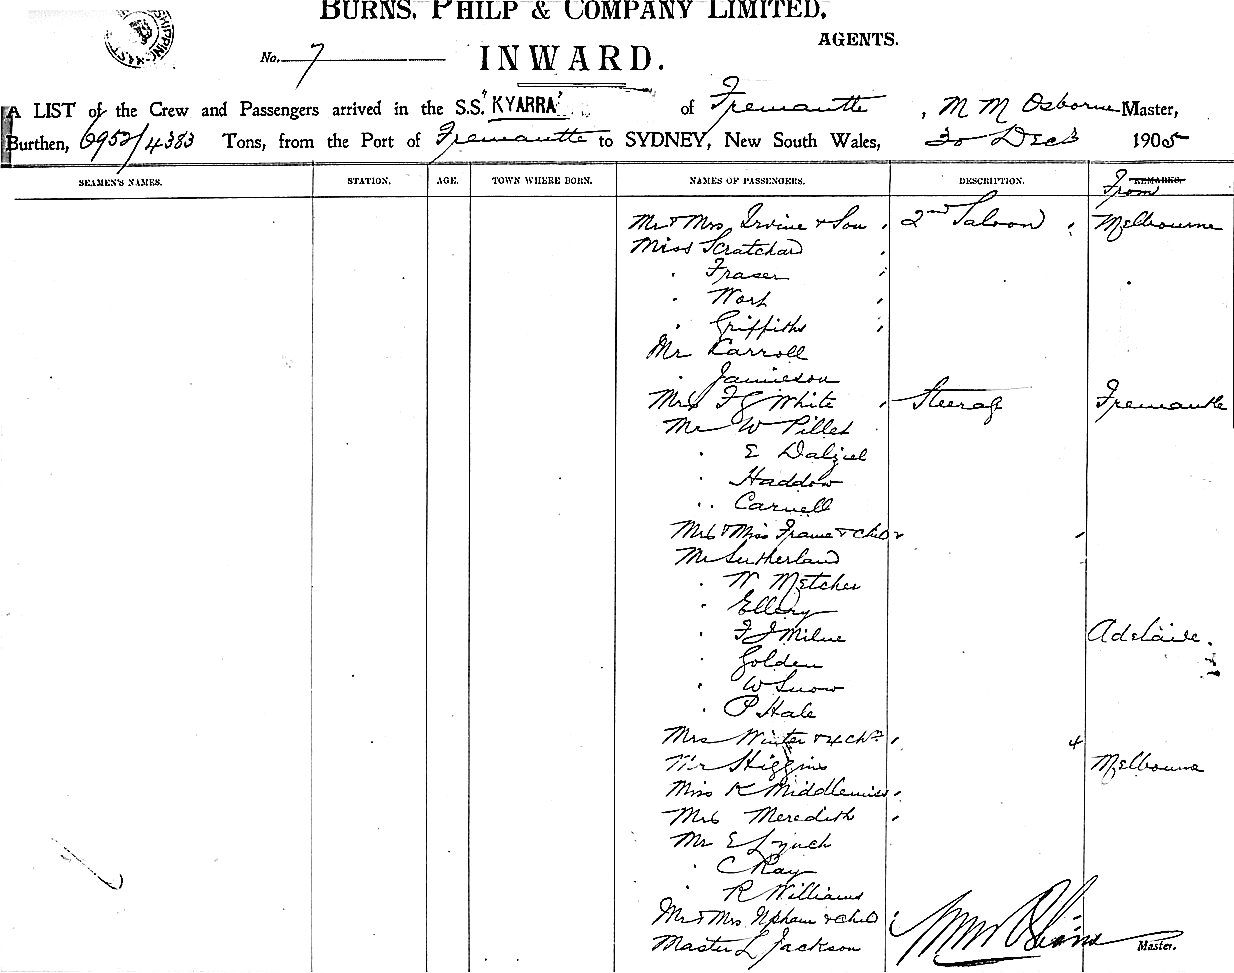 BURNS, PHILP & COMPANY LIMITED,
AGENTS.
No. 7
INWARD.
A LIST of the Crew and Passengers arrived in the S.S. "KYARRA" of Fremantle, M M Osborne Master,
Burthen, 6952/4383 Tons, from the Port of Fremantle to SYDNEY, New South Wales, 30 Decr 1905
SEAMEN'S NAMES. STATION. AGE. TOWN WHERE BORN. NAMES OF PASSENGERS. DESCRIPTION. REMARKS. From
Mr & Mrs Irvine & Son 2nd Saloon Melbourne
Miss Scratchard
" Fraser
" Wort
" Griffiths
Mr Carroll
" Jamieson
Mrs F G White Steerage Fremantle
Mr W Pillet
" E Dalziel
" Haddow
" Carnell
Mrs & Miss Frame & Chd
Mr Sutherland
" W Metcher
" Ellery
" F J Milne Adelaide.
" Golden
" W Snow
" P Hale
Mrs Winter & 4 Chn 4
Mr Higgins Melbourne
Miss K Middlemiss
Mrs Meredith
Mr E Lynch
" C Ray
" R Williams
Mr & Mrs Upham & Chd
Master L Jackson
Master.